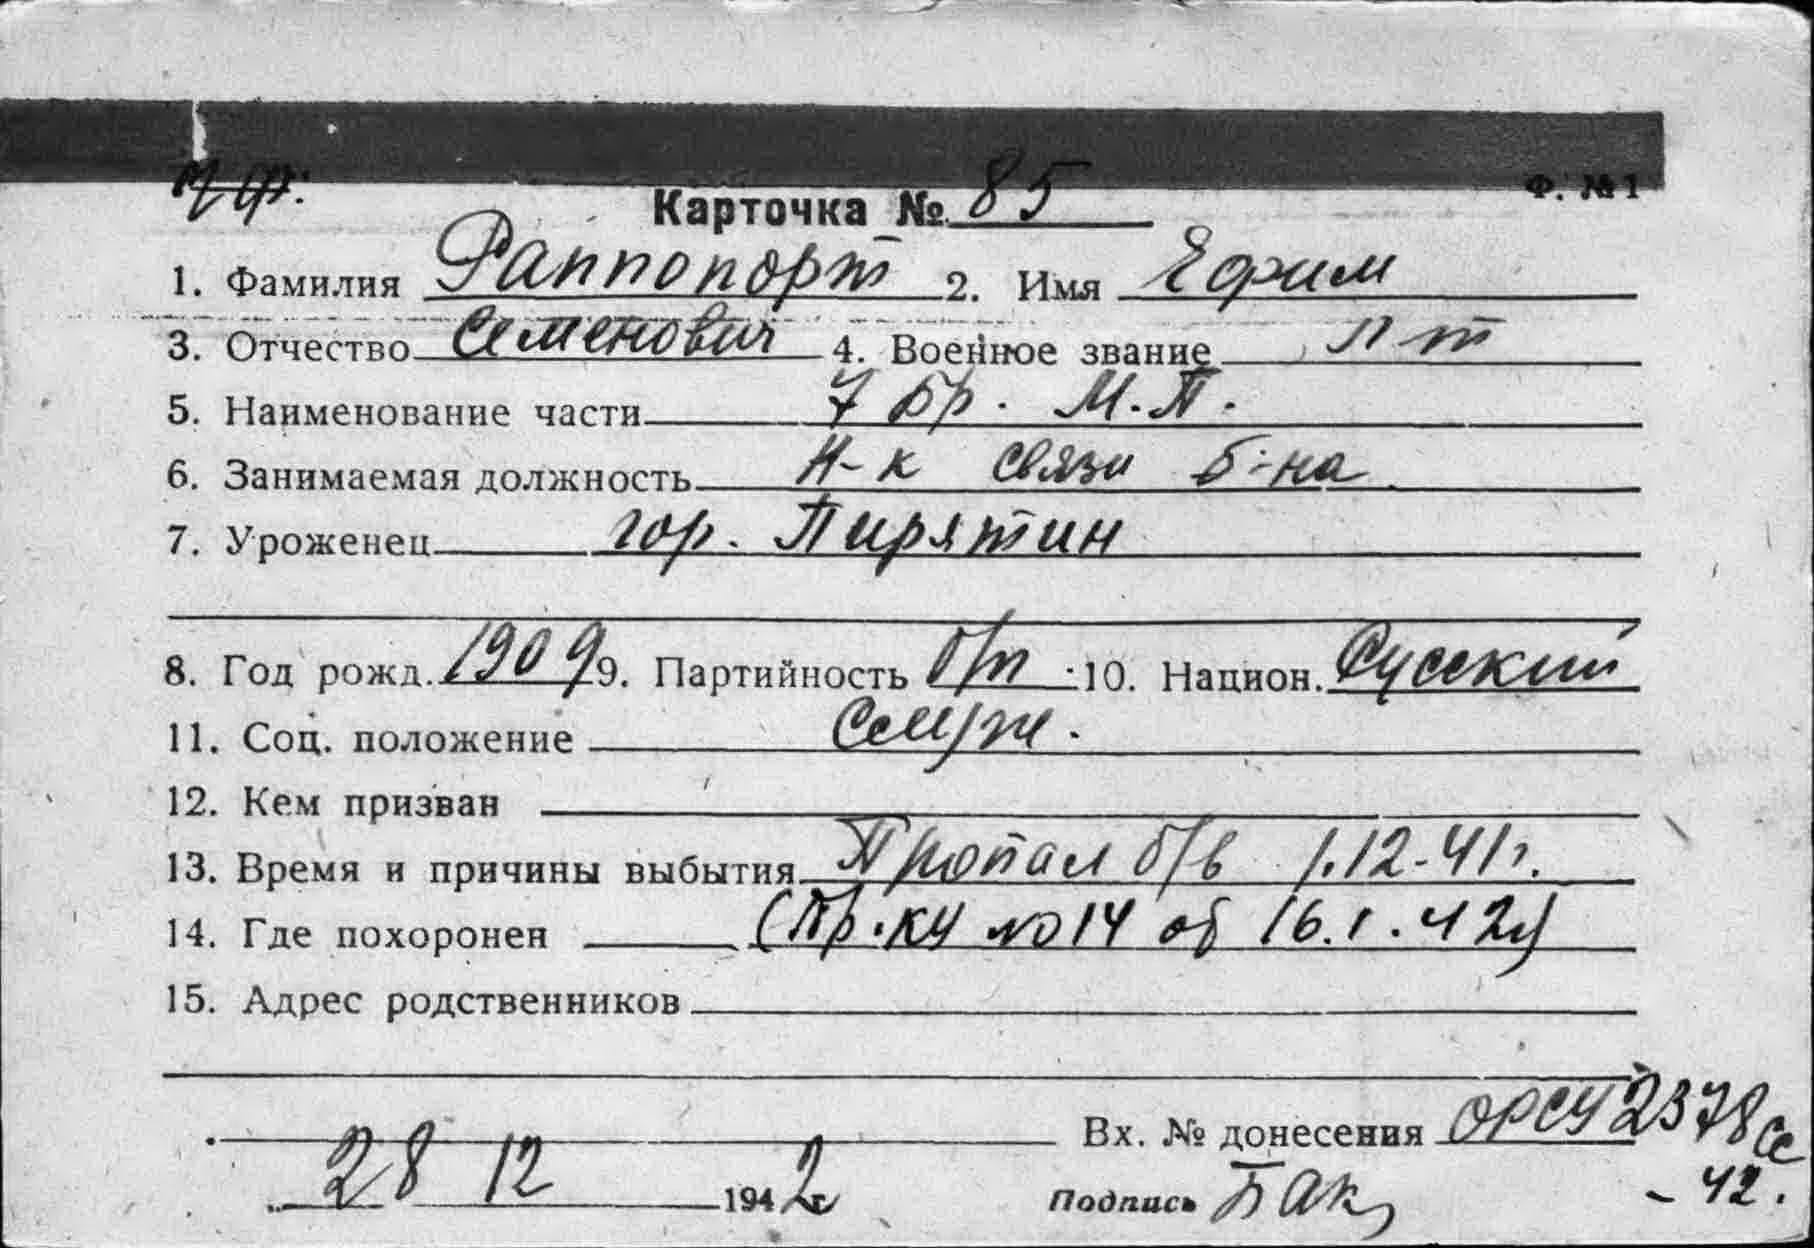 Ф. №1
Карточка № 85
1. Фамилия Раппопорт 2. Имя Ефим
3. Отчество Семенович 4. Военное звание л-т
5. Наименование части 7 Бр. М.П.
6. Занимаемая должность Н-к связи б-на
7. Уроженец гор. Пирятин
8. Год рожд. 1909 9. Партийность б/п 10. Национ. Русский
11. Соц. положение Служ.
12. Кем призван
13. Время и причины выбытия Пропал б/в 1.12-41г.
14. Где похоронен (Пр. КУ №14 об 16.1.42г)
15. Адрес родственников
Вх. № донесения ОРСУ 2378сс
-42.
28 12 1942г Подпись Бак